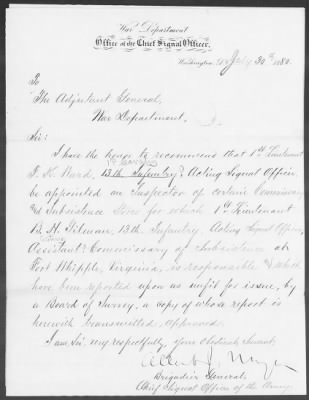 War Department
Office of the Chief Signal Officer,
Washington, D.C. July 30th 1880.
To
The Adjutant General,
War Department.
Sir:
I have the honor to recommend that 1st Lieutenant
F. K. Ward, Acting Signal Officer,
be appointed an Inspector of certain Commissary
and Subsistence Stores for which 1st Lieutenant
B. H. Gilman, 13th Infantry, Acting Signal Officer,
Assistant Commissary of Subsistence at
Fort Whipple, Virginia, is responsible & which
have been reported upon as unfit for issue, by
a Board of Survey, a copy of whose report is
herewith transmitted, approved.
I am Sir, very respectfully, your Obedient Servant,
Albert J. Myer
Brigadier General,
Chief Signal Officer of the Army.